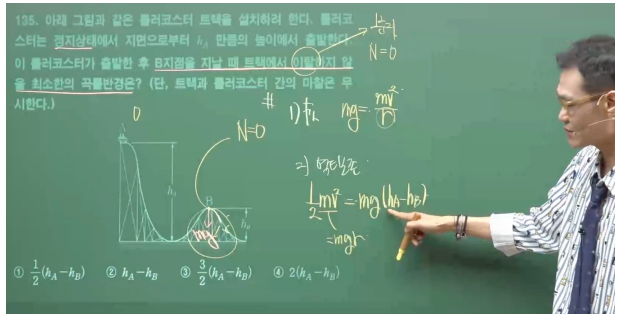 135. 아래 그림과 같은 롤러코스터 트랙을 설치하려 한다. 롤러코
스터는 정지상태에서 지면으로부터 h_A 만큼의 높이에서 출발한다.
이 롤러코스터가 출발한 후 B지점을 지날 때 트랙에서 이탈하지 않
을 최소한의 곡률반경은? (단, 트랙과 롤러코스터 간의 마찰은 무
시한다.)
N=0
0
N=0
1)
mg = mv²/r
2)
½mv² = mg(h_A-h_B)
=mgr
A
h_A
B
h_B
mg
① 1/2(h_A-h_B) ② h_A-h_B ③ 3/2(h_A-h_B) ④ 2(h_A-h_B)